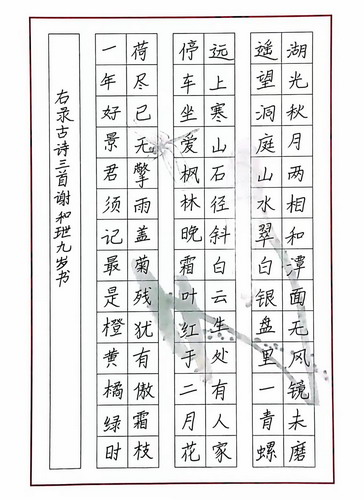 湖光秋月两相和潭面无风镜未磨
遥望洞庭山水翠白银盘里一青螺
远上寒山石径斜白云生处有人家
停车坐爱枫林晚霜叶红于二月花
荷尽已无擎雨盖菊残犹有傲霜枝
一年好景君须记最是橙黄橘绿时
右录古诗三首谢和玴九岁书